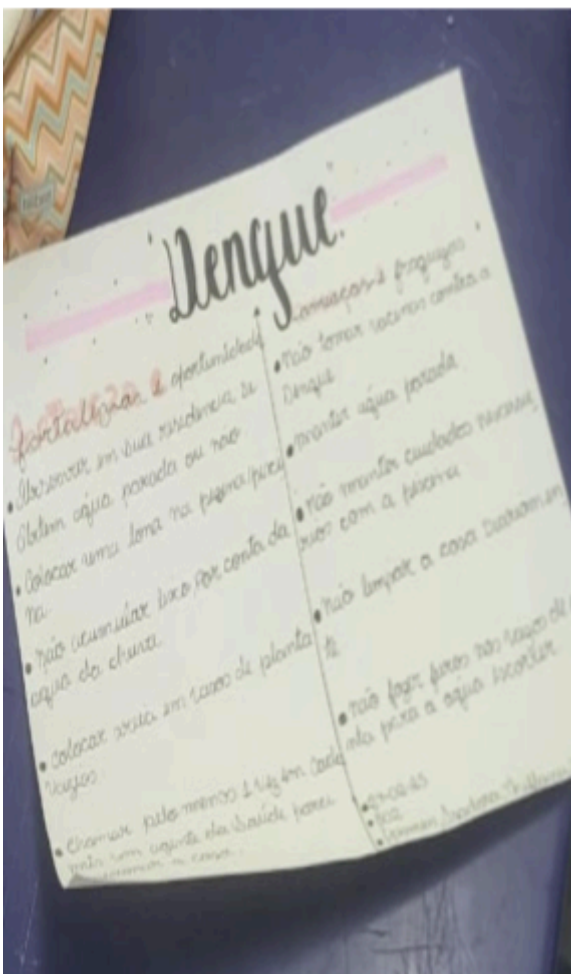 Dengue
fortaleza e oportunidade
• Observar em sua residência se
obtem água parada ou não
• Colocar uma lona na
na.
• não acumular lixo por conta da
água da chuva
• colocar areia em vasos de planta
vazios.
• chamar pelo menos 1 vez em cada
mês um agente da saúde para
a casa.
ameaças e fraquezas
• não tomar vacinas contra a
Dengue
• manter água parada
• não manter cuidados
com a piscina
• não limpar a casa
te
• não fazer furos nos vasos de
nta para a água escorrer